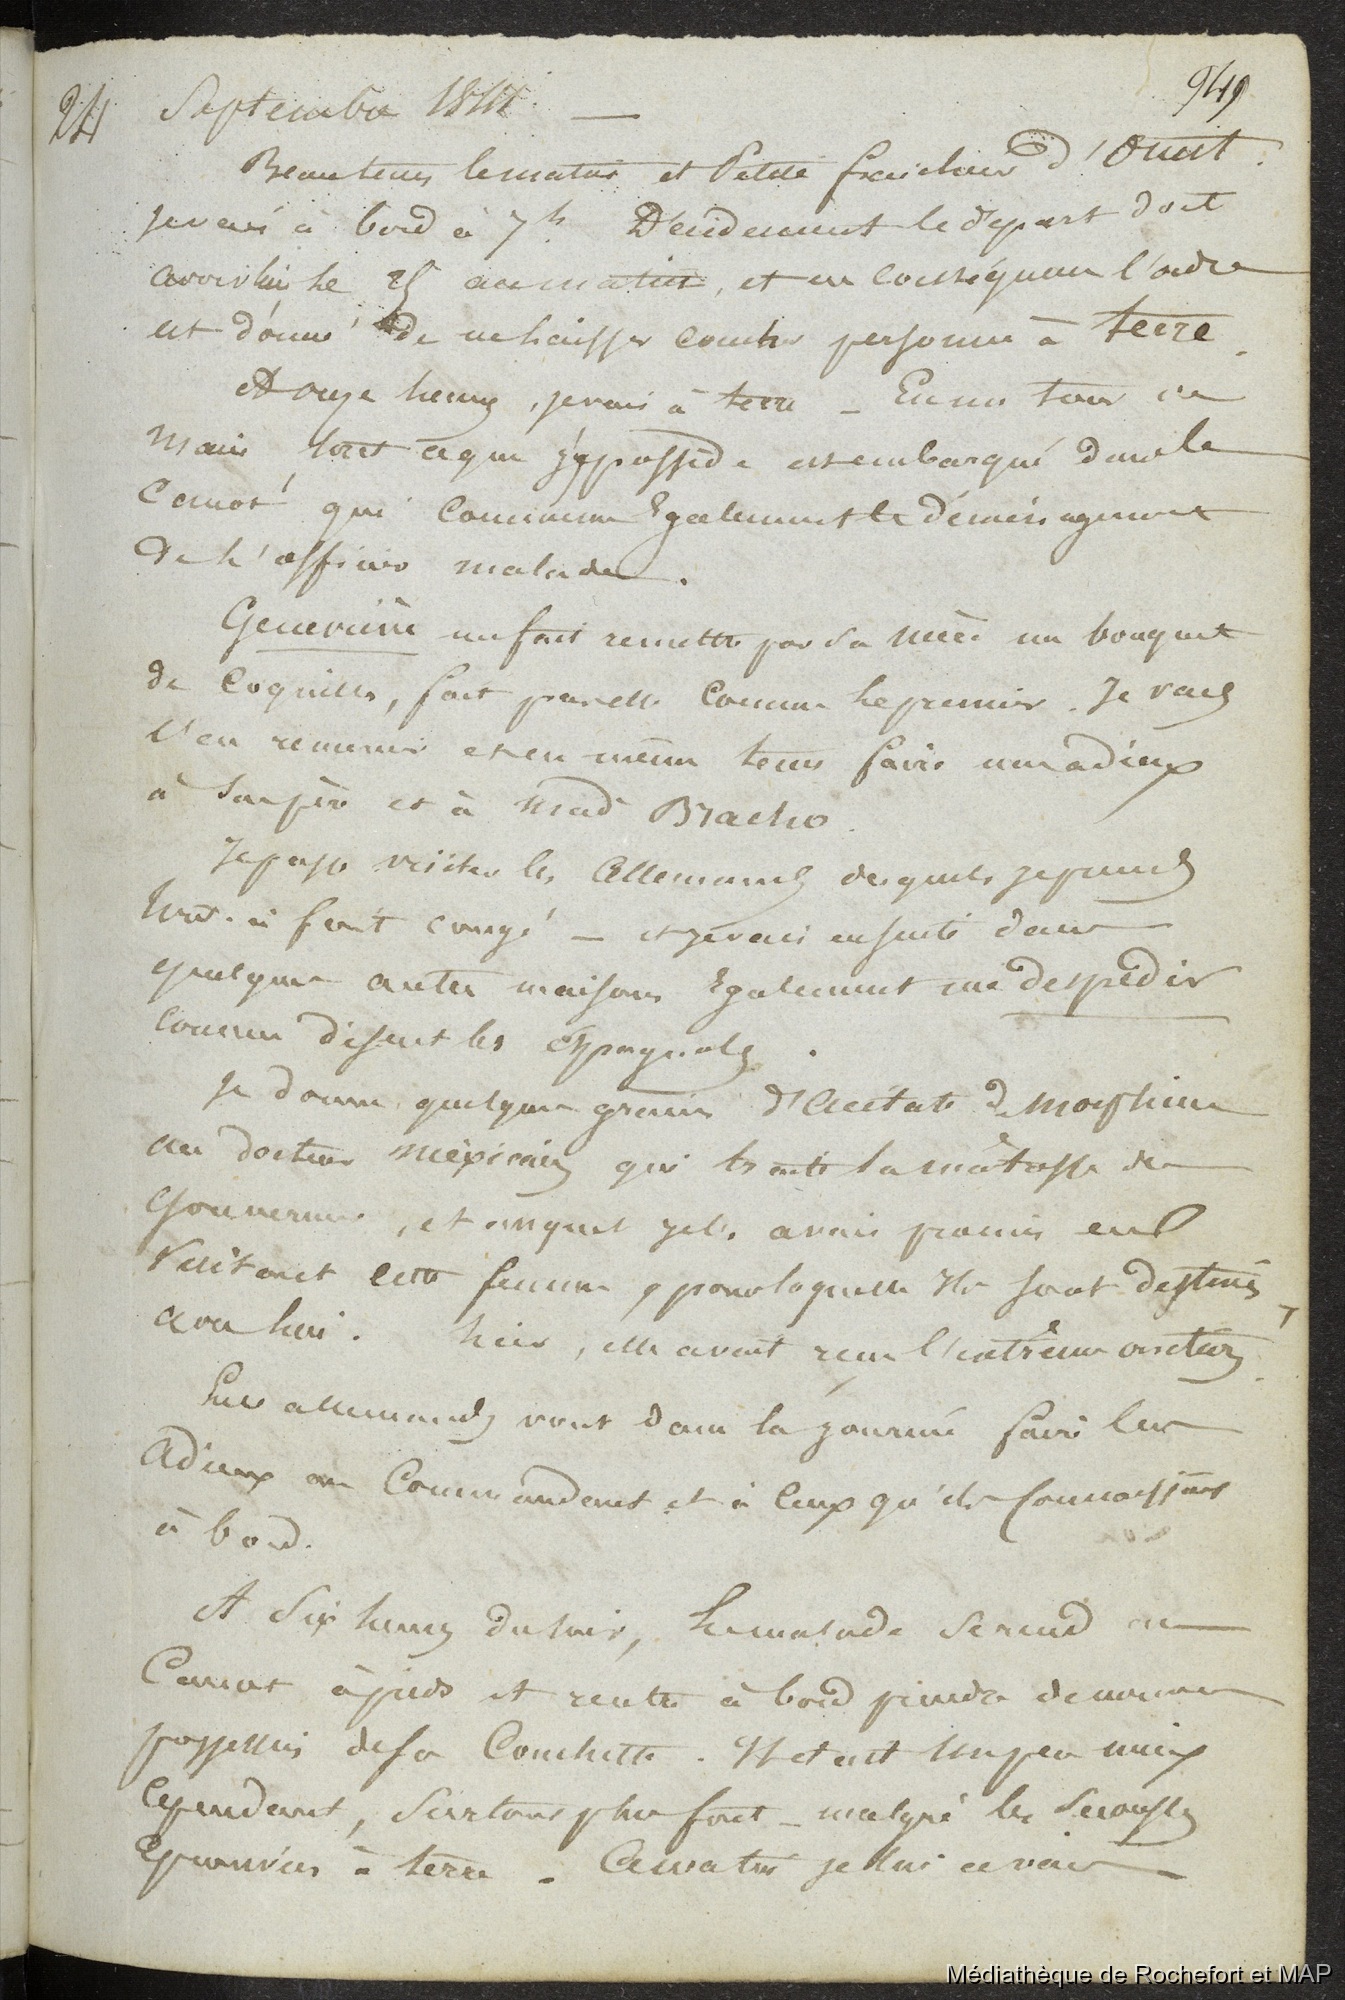 949
24 Septembre 1844 —
Beau tems le matin et Petite fraicheur d'Ouest.
je vais à bord à 7h. Décidement le départ doit
avoir lieu le 25 au matin, et en conséquence l'ordre
est donné de ne laisser coucher personne à terre.
A onze heures, je vais à terre — En un tour de
main tout ce que j'y possède est embarqué dans le
Canot qui commence également le déménagement
de l'officier malade.
Geneviève me fait remettre par sa mère un bouquet
de coquilles, fait par elle comme le premier. Je vais
l'en remercier et en même tems faire mes adieux
à son père et à Mad Bracho.
Je passe visiter les Allemands desquels je prends
tout-à-fait congé — et je vais ensuite dans
quelques autres maisons également me despédir
comme disent les espagnols.
Je donne quelques grains d'Acétate de Morphine
au docteur Méxicain qui traite la maîtresse du
Gouverneur, et auquel je les avais promis en
visitant cette femme, pour laquelle ils sont destinés
avec lui. hier, elle avait reçu l'extrême onction.
Les allemands vont dans la journée faire leurs
adieux au Commandant et à ceux qu'ils connoissent
à bord.
A Six heures du soir, le malade se rend au
Canot à pieds et rentre à bord prendre de nouveau
possession de sa Couchette. Il etait un peu mieux
cependant, surtout plus fort — malgré les secousses
éprouvées à terre. Ce matin je lui avais
Médiathèque de Rochefort et MAP